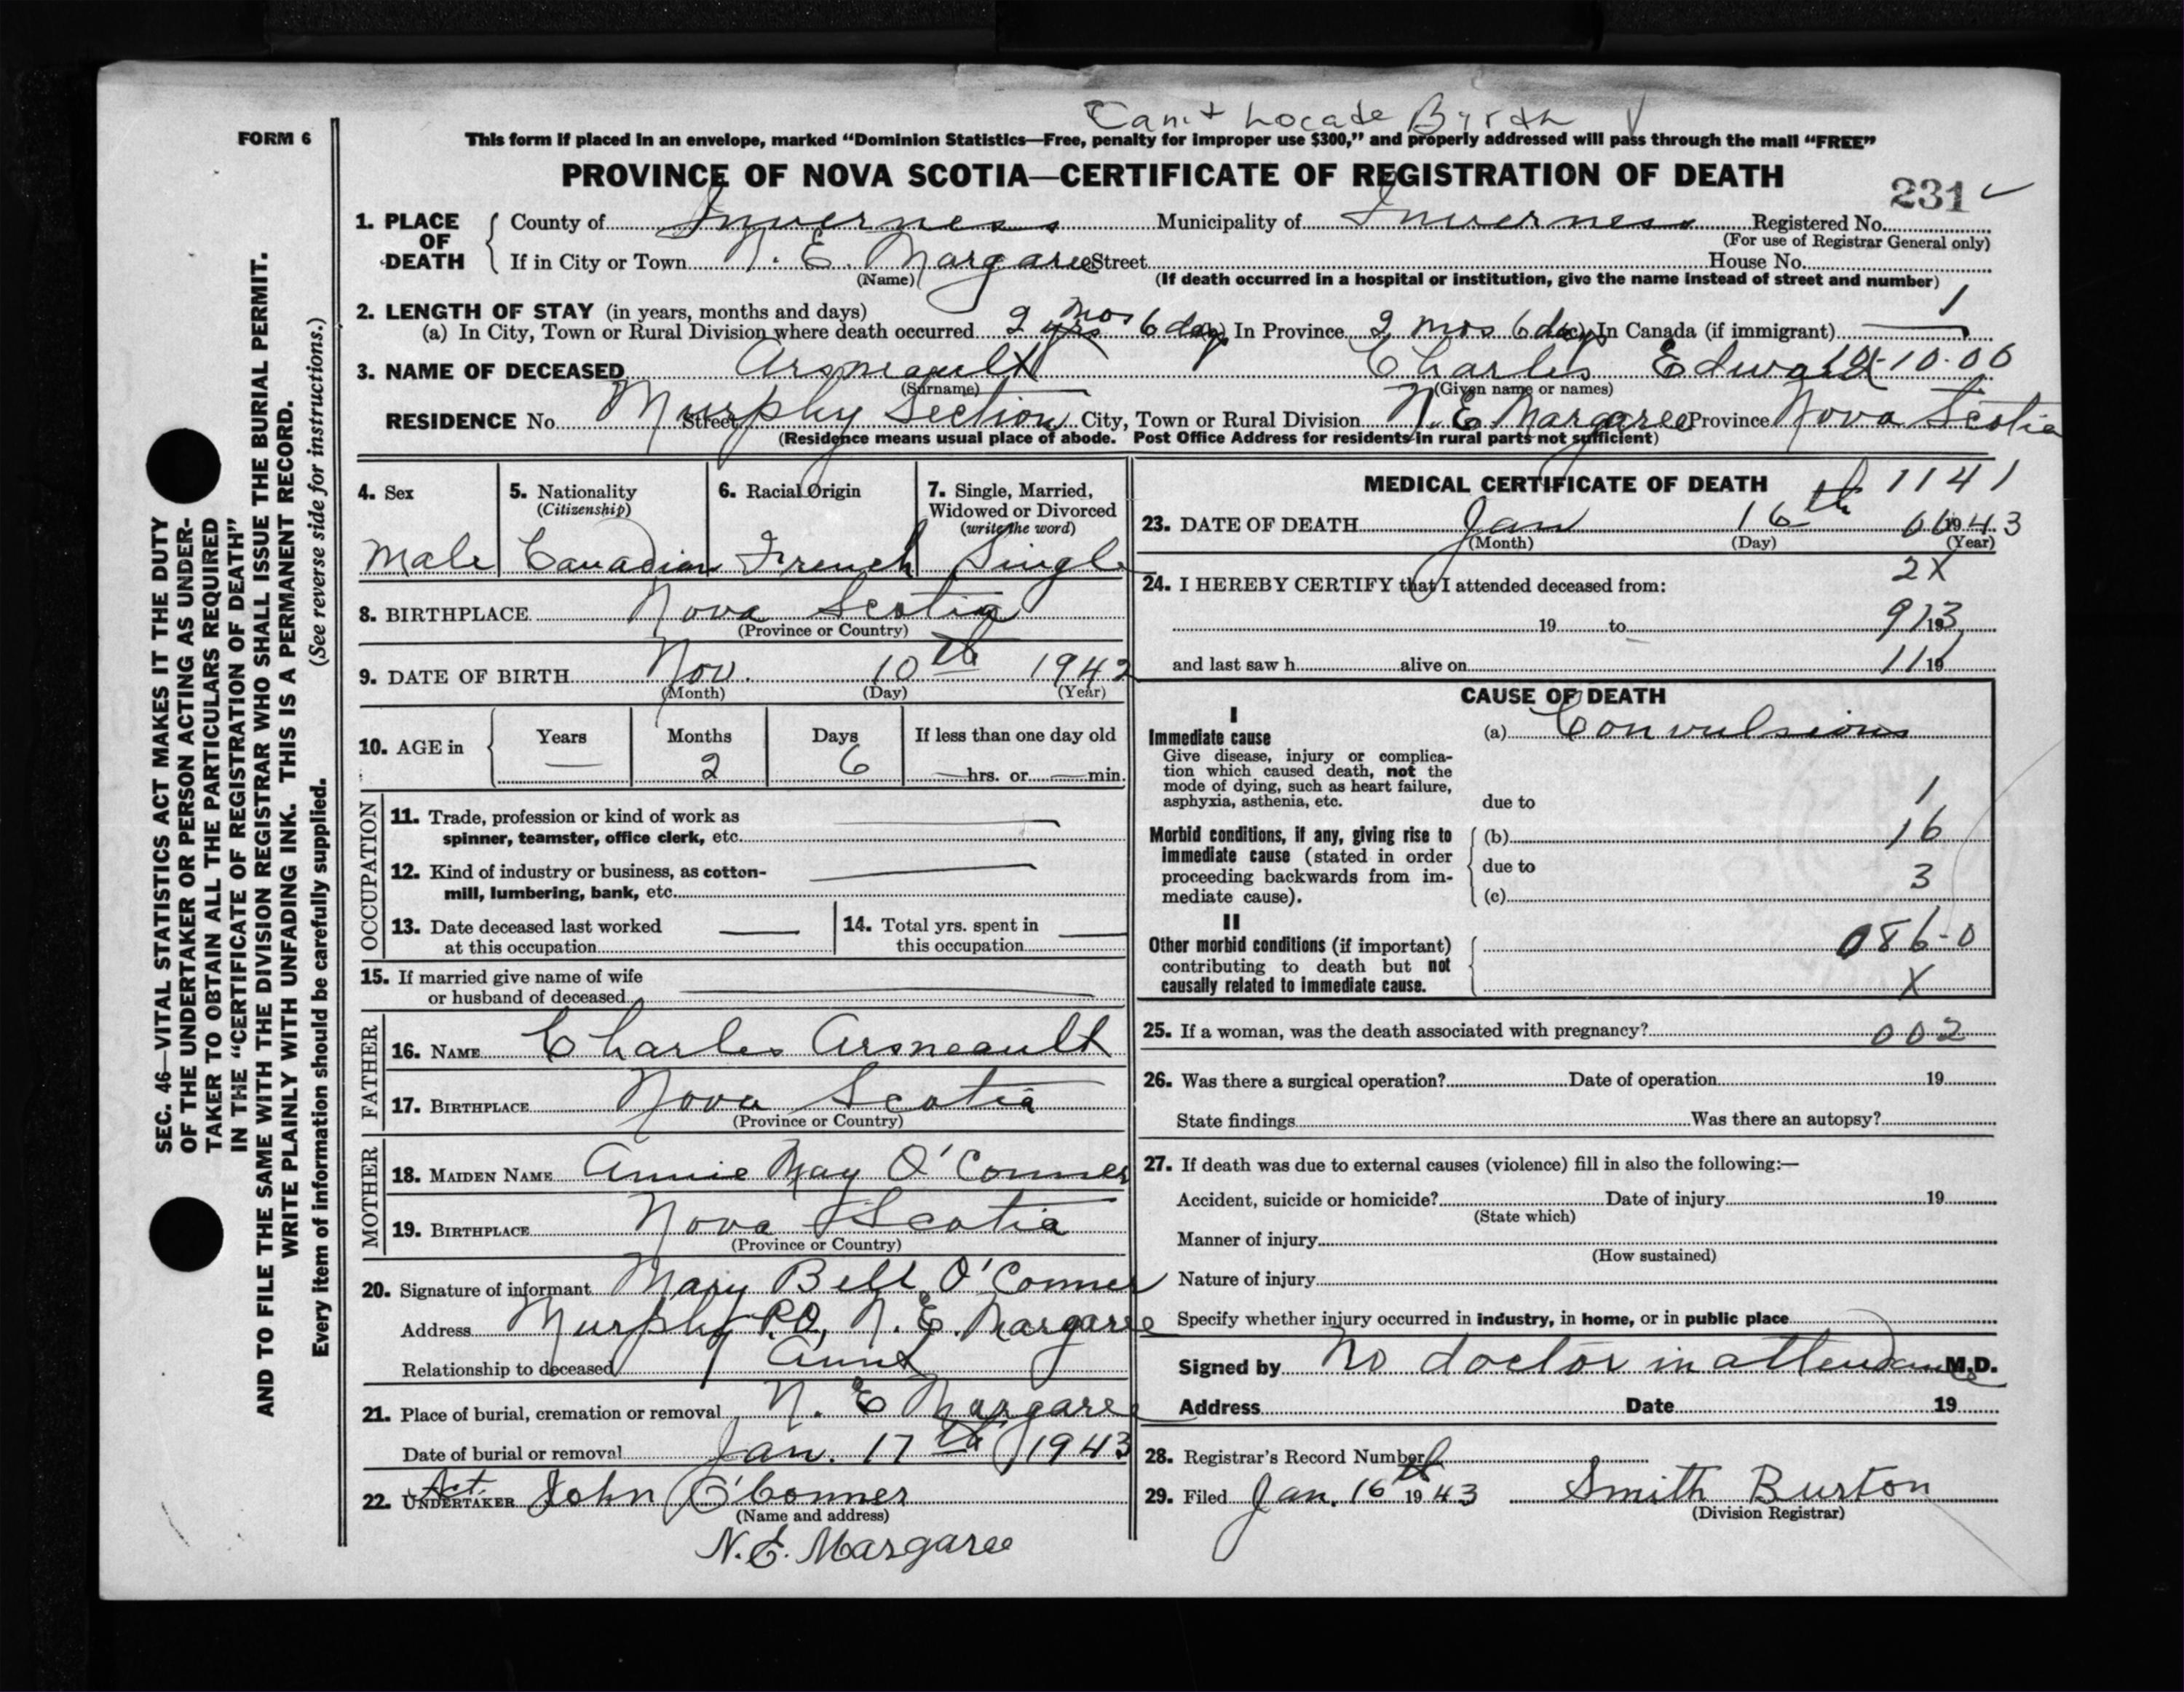 Can't Locade Byrth
FORM 6
This form if placed in an envelope, marked "Dominion Statistics—Free, penalty for improper use $300," and properly addressed will pass through the mail "FREE"
PROVINCE OF NOVA SCOTIA—CERTIFICATE OF REGISTRATION OF DEATH
231
1. PLACE OF DEATH County of Inverness Municipality of Inverness Registered No.
(For use of Registrar General only)
If in City or Town N. E. Margaree Street House No.
(Name) (If death occurred in a hospital or institution, give the name instead of street and number)
2. LENGTH OF STAY (in years, months and days)
(a) In City, Town or Rural Division where death occurred 2 yrs mos 6 days In Province 2 mos 6 days In Canada (if immigrant) 1
3. NAME OF DECEASED Arsneault Charles Edward 10-10-06
(Surname) (Given name or names)
RESIDENCE No. Murphy Section Street City, Town or Rural Division N. E. Margaree Province Nova Scotia
(Residence means usual place of abode. Post Office Address for residents in rural parts not sufficient)
4. Sex Male
5. Nationality (Citizenship) Canadian
6. Racial Origin French
7. Single, Married, Widowed or Divorced (write the word) Single
8. BIRTHPLACE Nova Scotia
(Province or Country)
9. DATE OF BIRTH Nov. 10th 1942
(Month) (Day) (Year)
10. AGE in Years — Months 2 Days 6 If less than one day old — hrs. or — min.
OCCUPATION
11. Trade, profession or kind of work as
spinner, teamster, office clerk, etc.
12. Kind of industry or business, as cotton-
mill, lumbering, bank, etc.
13. Date deceased last worked
at this occupation
14. Total yrs. spent in
this occupation
15. If married give name of wife
or husband of deceased
FATHER
16. NAME Charles Arsneault
17. BIRTHPLACE Nova Scotia
(Province or Country)
MOTHER
18. MAIDEN NAME Annie May O'Conner
19. BIRTHPLACE Nova Scotia
(Province or Country)
20. Signature of informant Mary Bell O'Conner
Address Murphy P.O. N. E. Margaree
Relationship to deceased Aunt
21. Place of burial, cremation or removal N. E Margaree
Date of burial or removal Jan. 17th 1943
22. Act. UNDERTAKER John O'Conner
(Name and address)
N.E. Margaree
MEDICAL CERTIFICATE OF DEATH 1141
23. DATE OF DEATH Jan 16th 1943
(Month) (Day) (Year)
2X
24. I HEREBY CERTIFY that I attended deceased from:
19 to 913 19
and last saw h alive on 111 19
CAUSE OF DEATH
I
Immediate cause (a) Convulsions
Give disease, injury or complica-
tion which caused death, not the
mode of dying, such as heart failure,
asphyxia, asthenia, etc. due to 1
Morbid conditions, if any, giving rise to (b) 16
immediate cause (stated in order
proceeding backwards from im- due to 3
mediate cause). (c)
II
Other morbid conditions (if important) 086-0
contributing to death but not
causally related to immediate cause. X
25. If a woman, was the death associated with pregnancy? 002
26. Was there a surgical operation? Date of operation 19
State findings Was there an autopsy?
27. If death was due to external causes (violence) fill in also the following:—
Accident, suicide or homicide? Date of injury 19
(State which)
Manner of injury
(How sustained)
Nature of injury
Specify whether injury occurred in industry, in home, or in public place
Signed by No doctor in attendance M.D.
Address Date 19
28. Registrar's Record Number
29. Filed Jan. 16th 1943 Smith Burton
(Division Registrar)
SEC. 46—VITAL STATISTICS ACT MAKES IT THE DUTY
OF THE UNDERTAKER OR PERSON ACTING AS UNDER-
TAKER TO OBTAIN ALL THE PARTICULARS REQUIRED
IN THE "CERTIFICATE OF REGISTRATION OF DEATH"
AND TO FILE THE SAME WITH THE DIVISION REGISTRAR WHO SHALL ISSUE THE BURIAL PERMIT.
WRITE PLAINLY WITH UNFADING INK. THIS IS A PERMANENT RECORD.
Every item of information should be carefully supplied. (See reverse side for instructions.)